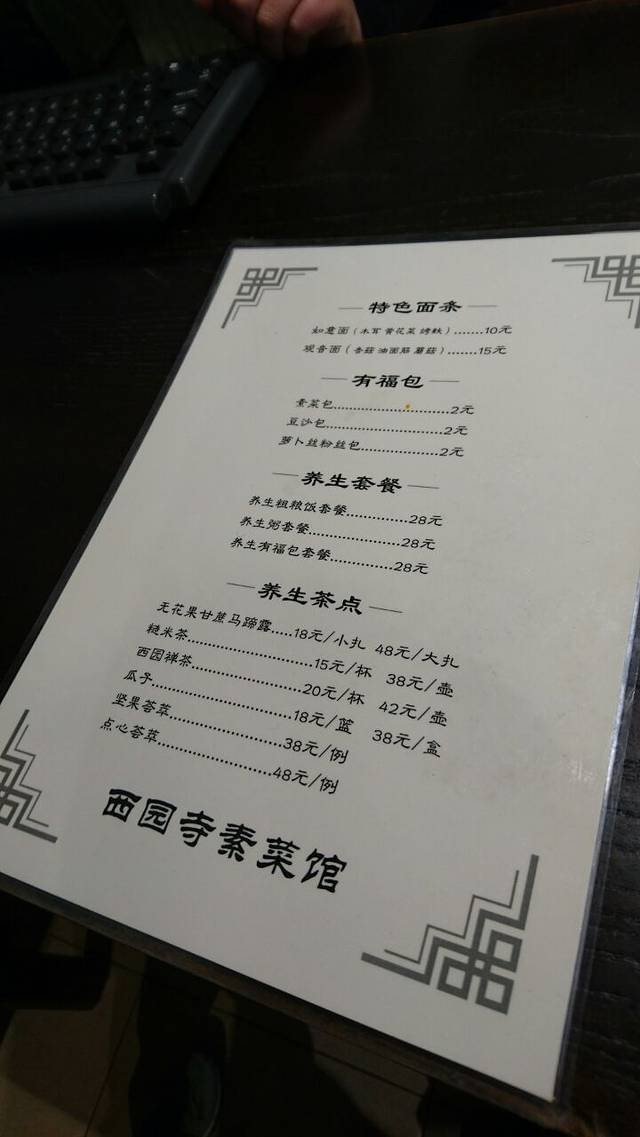 特色面条
如意面（木耳 黄花菜 烤麸）.......10元
观音面（香菇 油面筋 蘑菇）.......15元
有福包
素菜包...........................2元
豆沙包...........................2元
萝卜丝粉丝包..................2元
养生套餐
养生粗粮饭套餐..............28元
养生粥套餐.....................28元
养生有福包套餐..............28元
养生茶点
无花果甘蔗马蹄露.....18元/小扎 48元/大扎
糙米茶...........................15元/杯 38元/壶
西园禅茶........................20元/杯 42元/壶
瓜子..............................18元/篮 38元/盒
坚果荟萃........................38元/例
点心荟萃........................48元/例
西园寺素菜馆